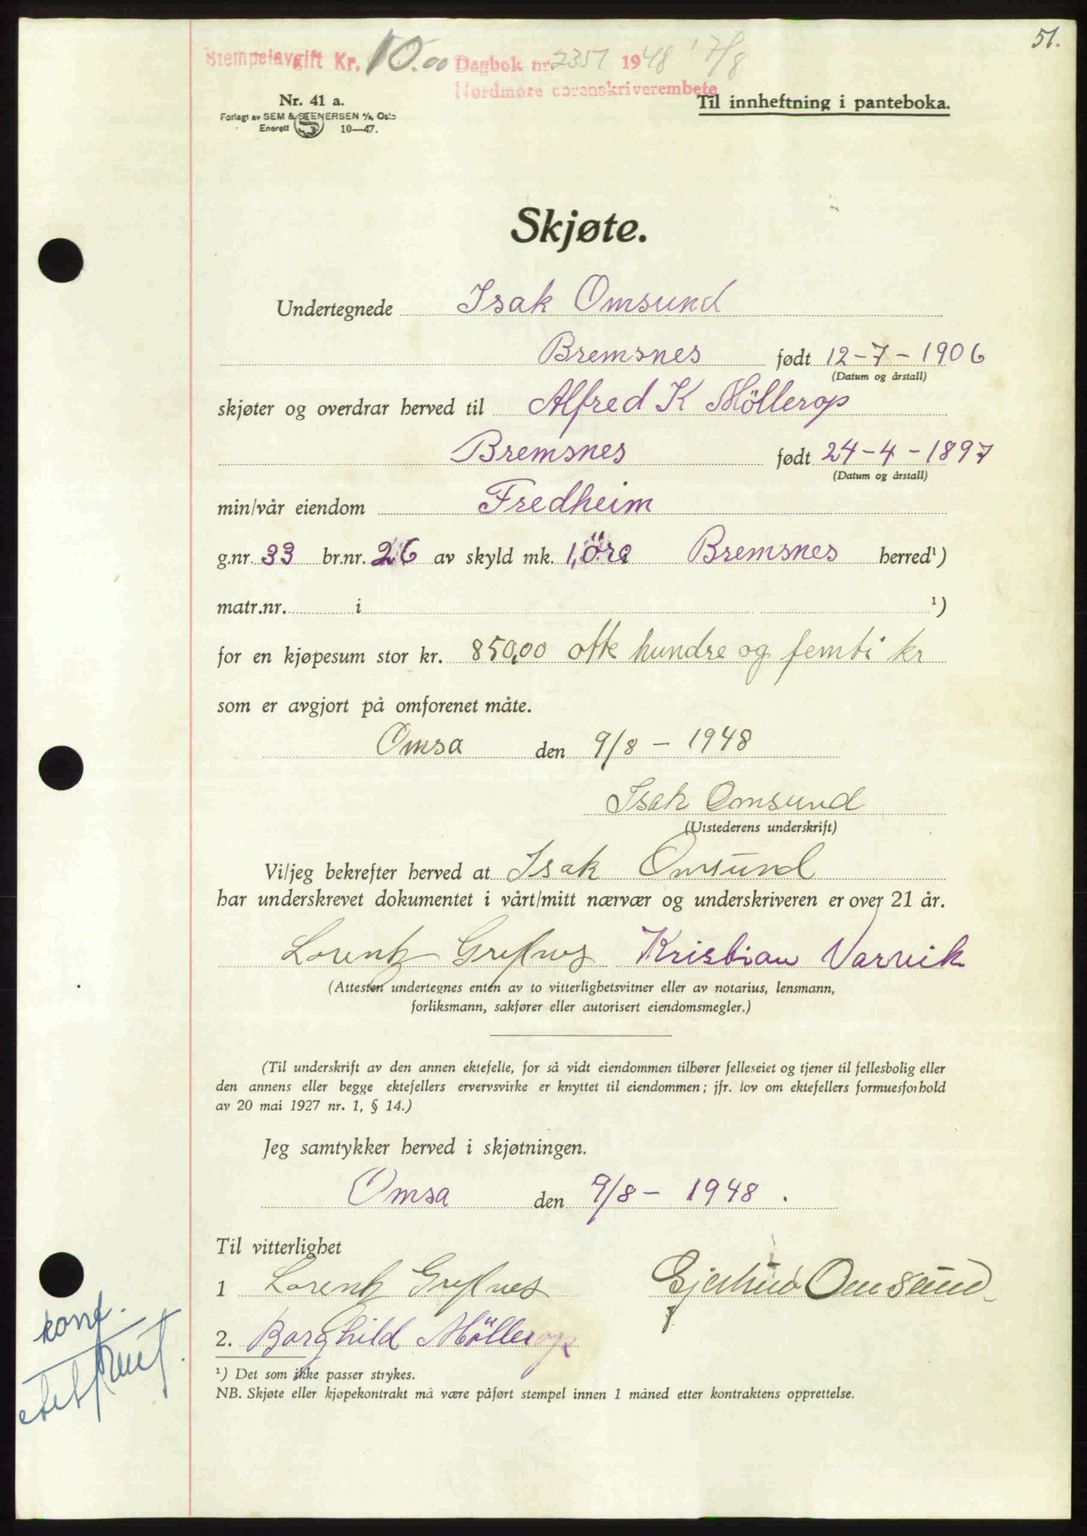 51.
Stempelavgift Kr. 10.00 Dagbok nr. 2351 1948 17/8
Nordmøre sorenskriverembete
Nr. 41 a.
Forlagt av SEM & STENERSEN A/S, Oslo
Enerett 10—47.
Til innheftning i panteboka.
Skjøte.
Undertegnede Isak Omsund
Bremsnes født 12-7-1906
(Datum og årstall)
skjøter og overdrar herved til Alfred K Möllerop
Bremsnes født 24-4-1897
(Datum og årstall)
min/vår eiendom Fredheim
g.nr. 33 br.nr. 26 av skyld mk. 1, öre Bremsnes herred¹)
matr.nr. i ¹)
for en kjøpesum stor kr. 850,00 otte hundre og femti kr
som er avgjort på omforenet måte.
Omsa den 9/8 - 1948
Isak Omsund
(Utstederens underskrift)
Vi/jeg bekrefter herved at Isak Omsund
har underskrevet dokumentet i vårt/mitt nærvær og underskriveren er over 21 år.
Lorentz Kristian Varvik
(Attesten undertegnes enten av to vitterlighetsvitner eller av notarius, lensmann,
forliksmann, sakfører eller autorisert eiendomsmegler.)
(Til underskrift av den annen ektefelle, for så vidt eiendommen tilhører felleseiet og tjener til fellesbolig eller
den annens eller begge ektefellers ervervsvirke er knyttet til eiendommen; jfr. lov om ektefellers formuesforhold
av 20 mai 1927 nr. 1, § 14.)
Jeg samtykker herved i skjøtningen.
Omsa den 9/8 - 1948.
Til vitterlighet
1 Lorentz Omsund
2. Borghild Möllerop
¹) Det som ikke passer strykes.
NB. Skjøte eller kjøpekontrakt må være påført stempel innen 1 måned etter kontraktens opprettelse.
konf.